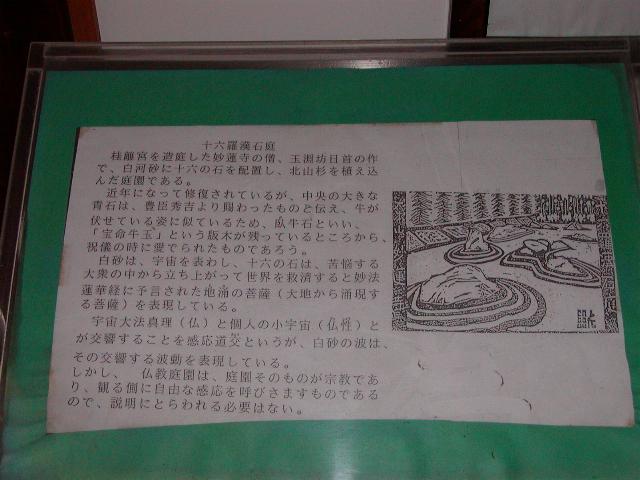 十六羅漢石庭
桂離宮を造庭した妙蓮寺の僧、玉淵坊日首の作
で、白河砂に十六の石を配置し、北山杉を植え込
んだ庭園である。
近年になって修復されているが、中央の大きな
青石は、豊臣秀吉より賜わったものと伝え、牛が
伏せている姿に似ているため、臥牛石といい、
「宝命牛玉」という版木が残っているところから、
祝儀の時に愛でられたものであろう。
白砂は、宇宙を表わし、十六の石は、苦悩する
大衆の中から立ち上がって世界を救済すると妙法
蓮華経に予言された地涌の菩薩（大地から涌現す
る菩薩）を表現している。
宇宙大法真理（仏）と個人の小宇宙（仏性）と
が交響することを感応道交というが、白砂の波は、
その交響する波動を表現している。
しかし、 仏教庭園は、庭園そのものが宗教であ
り、観る側に自由な感応を呼びさますものである
ので、説明にとらわれる必要はない。